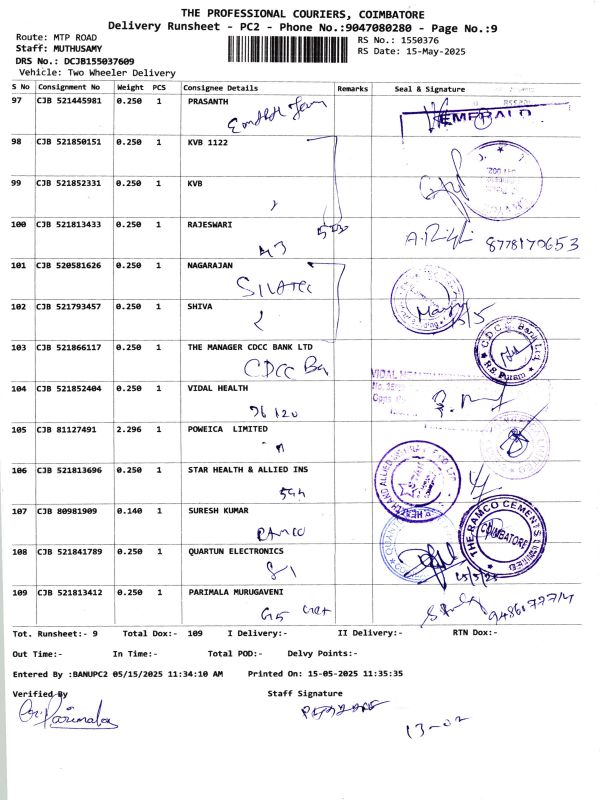 THE PROFESSIONAL COURIERS, COIMBATORE
Delivery Runsheet - PC2 - Phone No.:9047080280 - Page No.:9
Route: MTP ROAD
RS No.: 1550376
Staff: MUTHUSAMY
RS Date: 15-May-2025
DRS No.: DCJB155037609
Vehicle: Two Wheeler Delivery
S No Consignment No Weight PCS Consignee Details Remarks Seal & Signature
97 CJB 521445981 0.250 1 PRASANTH
EMERALD
98 CJB 521850151 0.250 1 KVB 1122
99 CJB 521852331 0.250 1 KVB
100 CJB 521813433 0.250 1 RAJESWARI
8778170653
101 CJB 520581626 0.250 1 NAGARAJAN
102 CJB 521793457 0.250 1 SHIVA
103 CJB 521866117 0.250 1 THE MANAGER CDCC BANK LTD
CDCC Ba
C.D.C.C. Bank Ltd., R.S. Puram
104 CJB 521852404 0.250 1 VIDAL HEALTH
105 CJB 81127491 2.296 1 POWEICA LIMITED
106 CJB 521813696 0.250 1 STAR HEALTH & ALLIED INS
107 CJB 80981909 0.140 1 SURESH KUMAR
RAMCO
THE RAMCO CEMENTS LIMITED
COIMBATORE
108 CJB 521841789 0.250 1 QUARTUN ELECTRONICS
109 CJB 521813412 0.250 1 PARIMALA MURUGAVENI
Tot. Runsheet:- 9 Total Dox:- 109 I Delivery:- II Delivery:- RTN Dox:-
Out Time:- In Time:- Total POD:- Delvy Points:-
Entered By :BANUPC2 05/15/2025 11:34:10 AM Printed On: 15-05-2025 11:35:35
Verified By Staff Signature
13-02